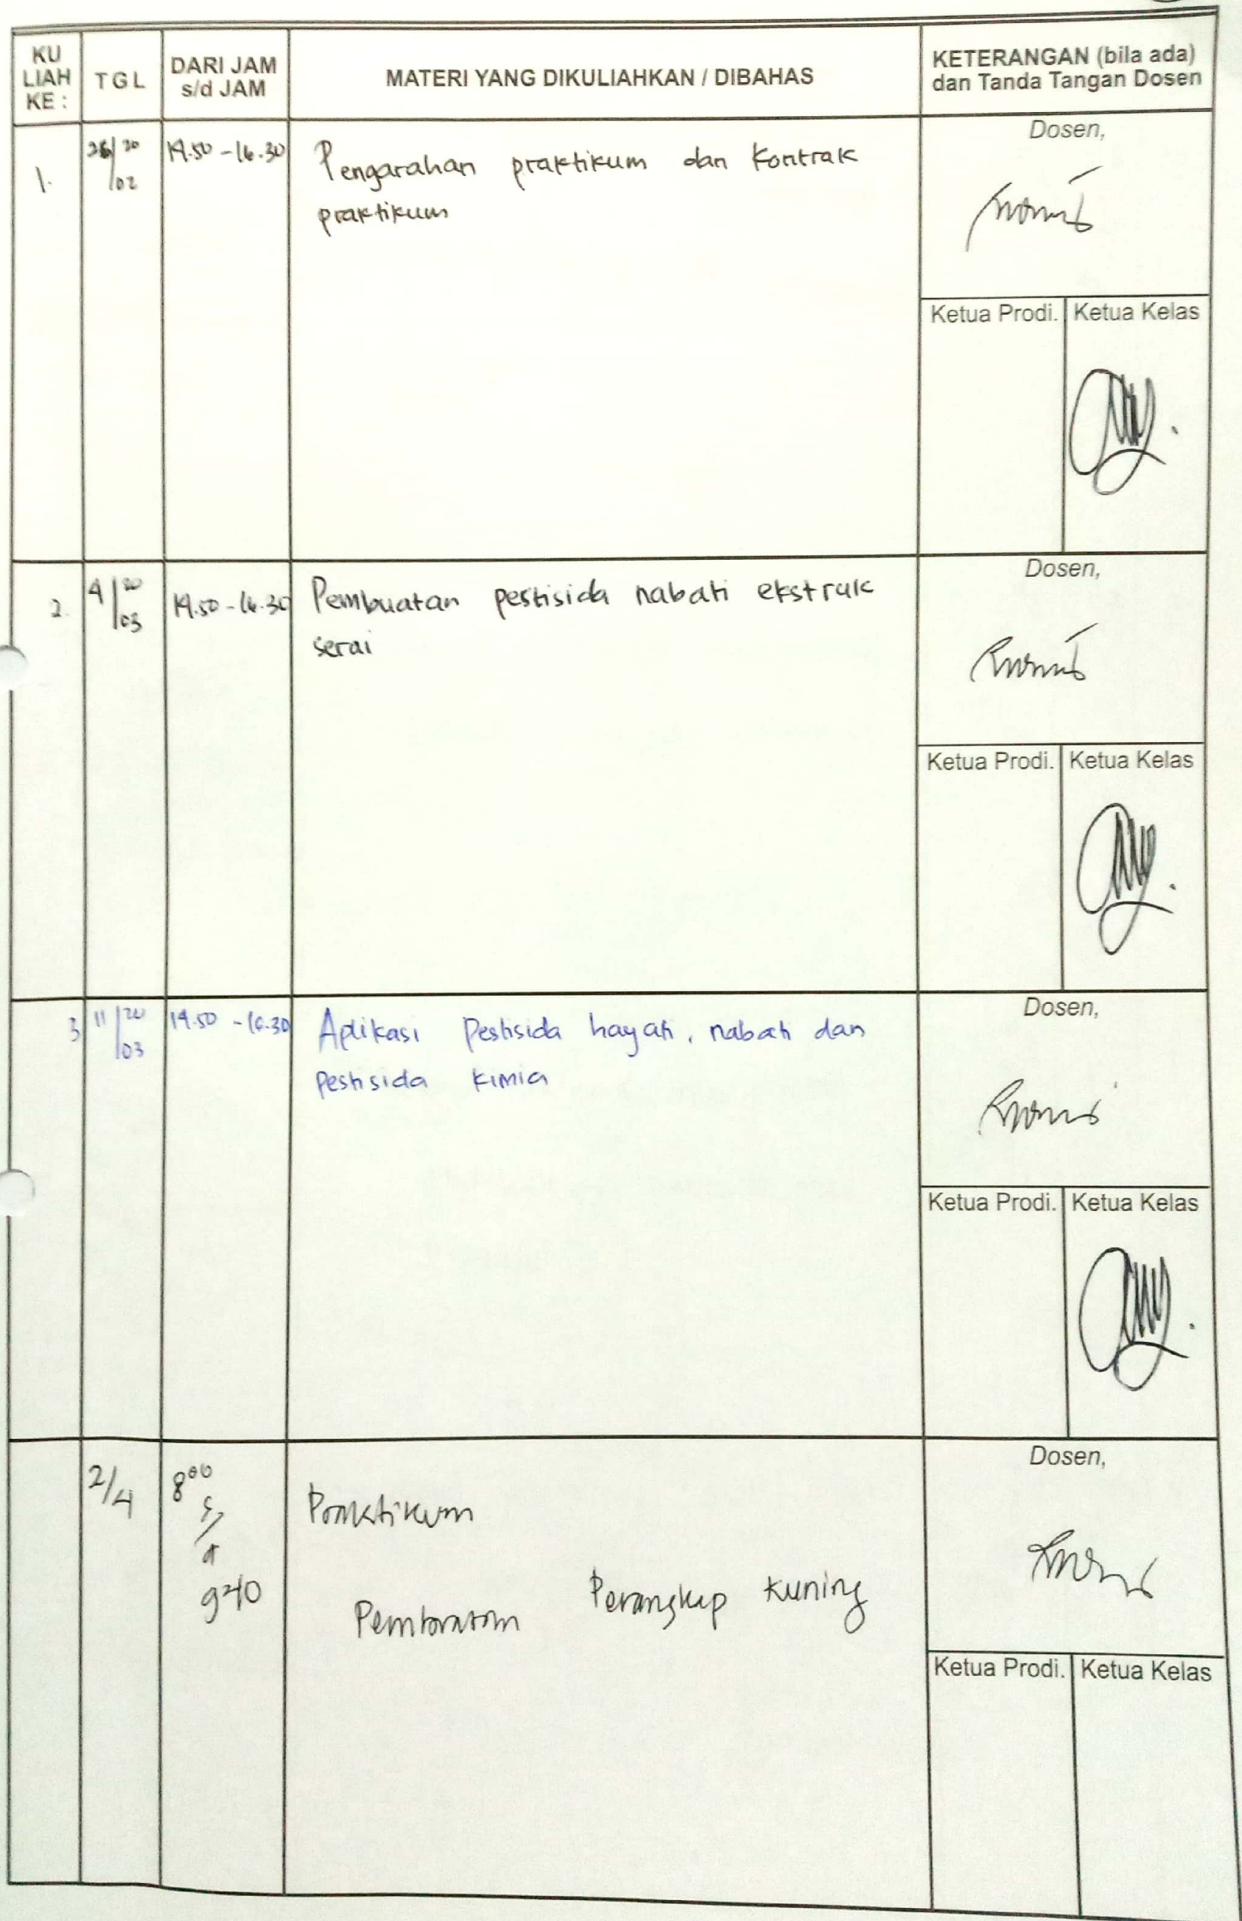 KU
LIAH
KE :
TGL
DARI JAM
s/d JAM
MATERI YANG DIKULIAHKAN / DIBAHAS
KETERANGAN (bila ada)
dan Tanda Tangan Dosen
1.
26/20
/02
14.50 - 16.30
Pengarahan praktikum dan kontrak
praktikum
Dosen,
Ketua Prodi.
Ketua Kelas
2.
4/20
/03
14.50 - 16.30
Pembuatan pestisida nabati ekstrak
serai
Dosen,
Ketua Prodi.
Ketua Kelas
3
11/20
/03
14.50 - 16.30
Aplikasi Pestisida hayati, nabati dan
Pestisida kimia
Dosen,
Ketua Prodi.
Ketua Kelas
2/4
8⁰⁰
s/d
9⁴⁰
Praktikum
Pembuatan Perangkap Kuning
Dosen,
Ketua Prodi.
Ketua Kelas